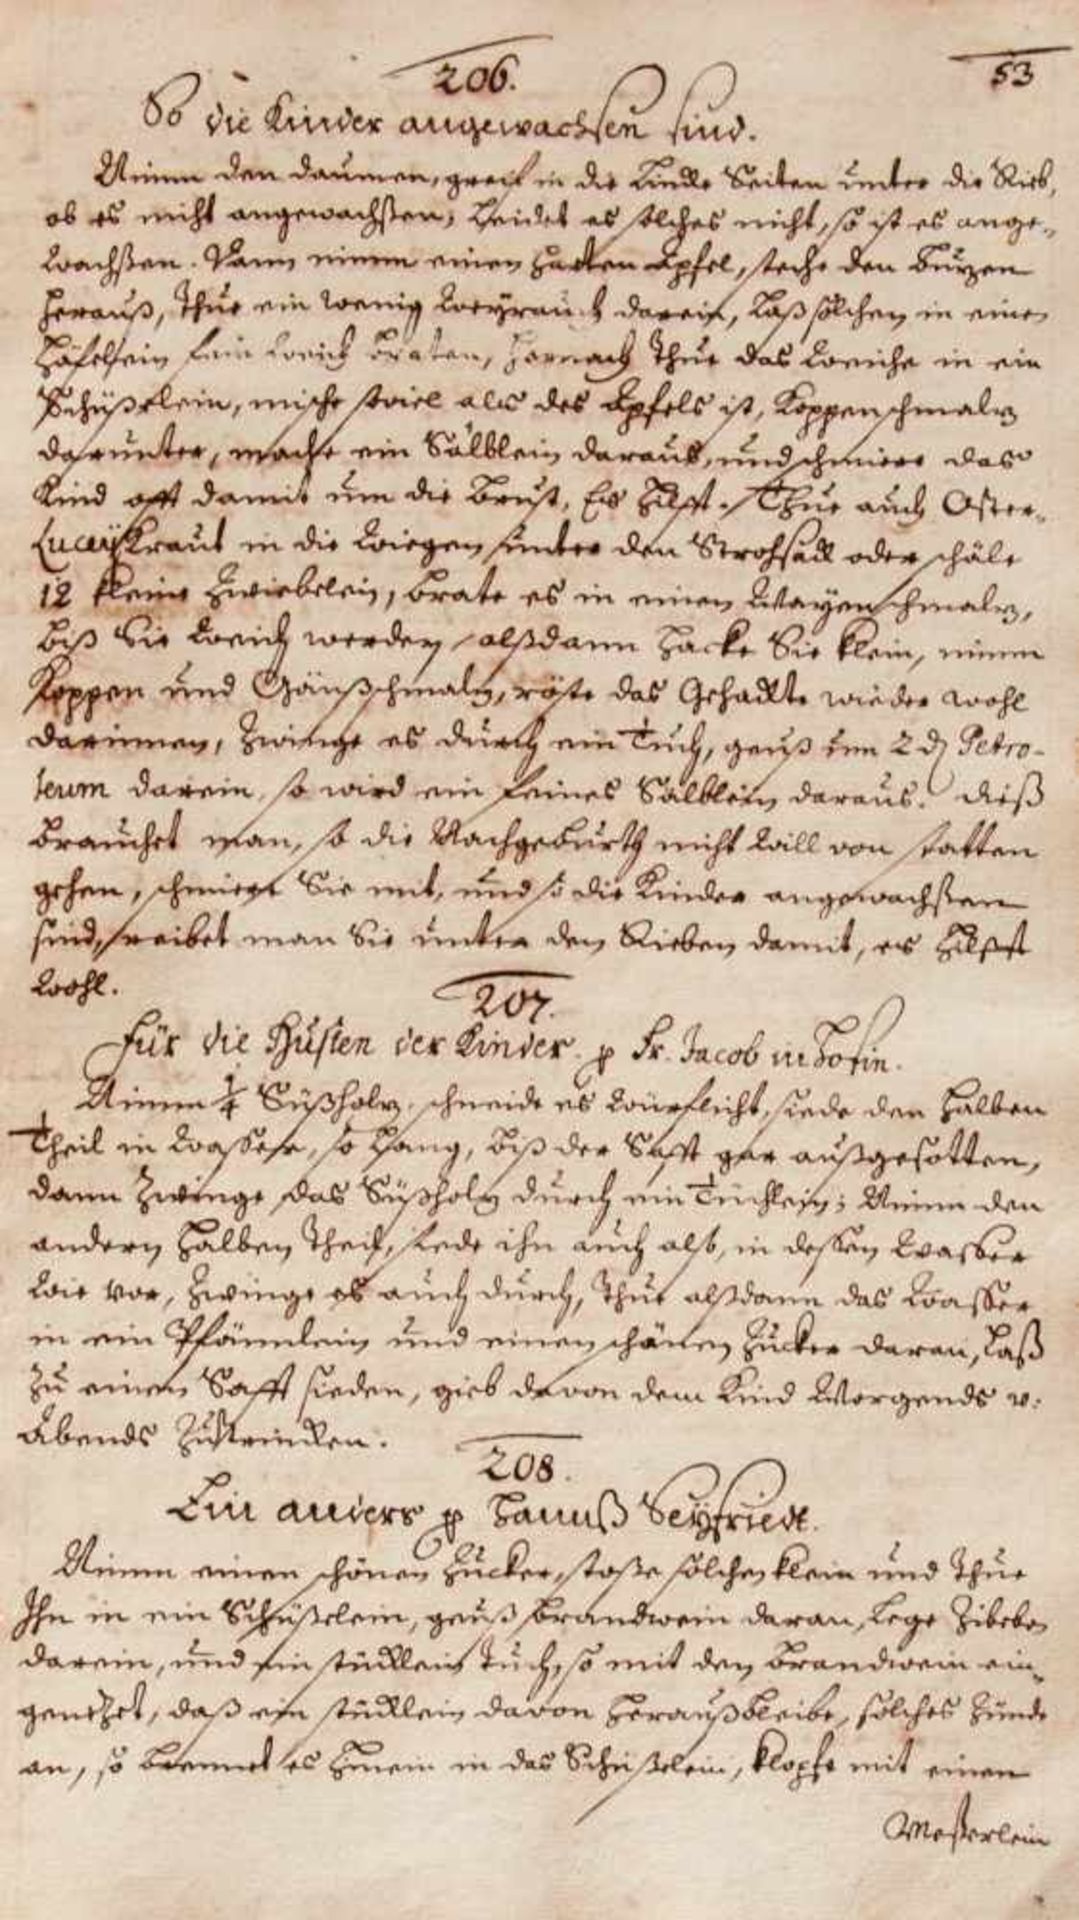 206.
53
So die Kinder angewachsen sind.
Nimm den daumen, greif in die Lincke Seiten unter die Rieb,
ob es nicht angewachßen, Leidet es solches nicht, so ist es ange-
wachßen. Dann nimm einen harten Apfel, steche den Butzen
herauß, Thue ein wenig Weyrauch darein, Laß solchen in einen
Häfelein fein weich braten, hernach Thue das Weiche in ein
Schüßelein, mische soviel als des Apfels ist, Koppenschmaltz
darunter, mache ein Sälblein daraus, und schmiere das
Kind offt damit um die Brust, Es hilfft. Thue auch Oster-
Lucey Kraut in die Wiegen unter den Strohsack oder schäle
12 kleine Zwiebelein, brate es in einen Mayenschmaltz,
biß Sie weich werden, alßdann hacke Sie klein, nimm
Koppen und Gänßschmaltz, röste das Gehackte wieder wohl
darinnen, Zwinge es durch ein Tuch, geuß um 2 d Petro-
leum darein, so wird ein feines Sälblein daraus. dieß
brauchet man, so die Nachgeburth nicht will von statten
gehen, schmiere Sie mit, und so die Kinder angewachßen
sind, reibet man Sie unter den Rieben damit, es hilfft
wohl.
207.
Für die Husten der Kinder. p Fr. Jacob in
Nimm 1/4 Süßholtz, schneide es würflicht, siede den halben
Theil in Wasser, so Lang, biß der Safft gar außgesotten,
dann Zwinge das Süßholtz durch ein Tüchlein; Nimm den
andern halben Theil, siede ihn auch also, in dessen Wasser
wie vor, Zwinge es auch durch, Thue alßdann das Wasser
in ein Pfännlein und einen schönen Zucker daran, Laß
Zu einen Safft sieden, gieb davon dem Kind Morgends v:
Abends Zu trincken.
208.
Ein anders p Hannß Seyfriedt.
Nimm einen schönen Zucker, stoße solchen klein und Thue
Ihn in ein Schüßelein, geuß brandwein daran, Lege Zibeben
darein, und ein stücklein Tuch, so mit den brandwein ein-
genetzet, daß ein stücklein davon herauß bleibe, solches Zünde
an, so brennet es hinein in das Schüßelein, klopfe mit einen
Meßerlein